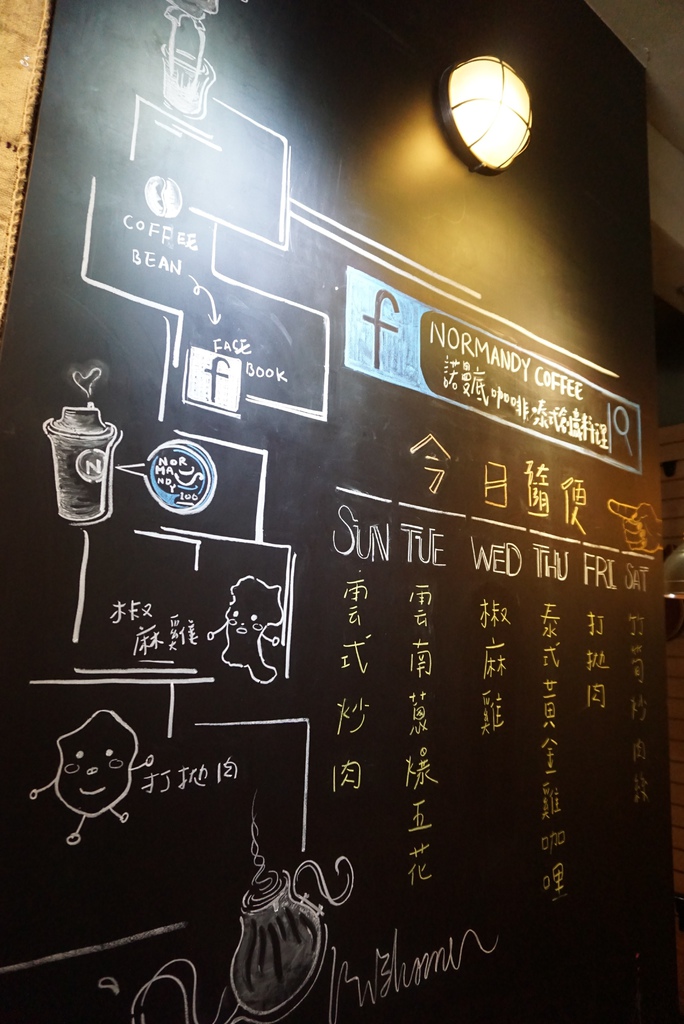 COFFEE
BEAN
FACE
BOOK
f
f
NORMANDY COFFEE
諾曼底咖啡.泰式料理
今日隨便
N
NOR
MA
NDY
SUN
TUE
WED
THU
FRI
SAT
雲式炒肉
雲南蔥爆五花
椒麻雞
泰式黃金雞咖哩
打拋肉
打筍炒肉
椒
麻雞
打拋肉